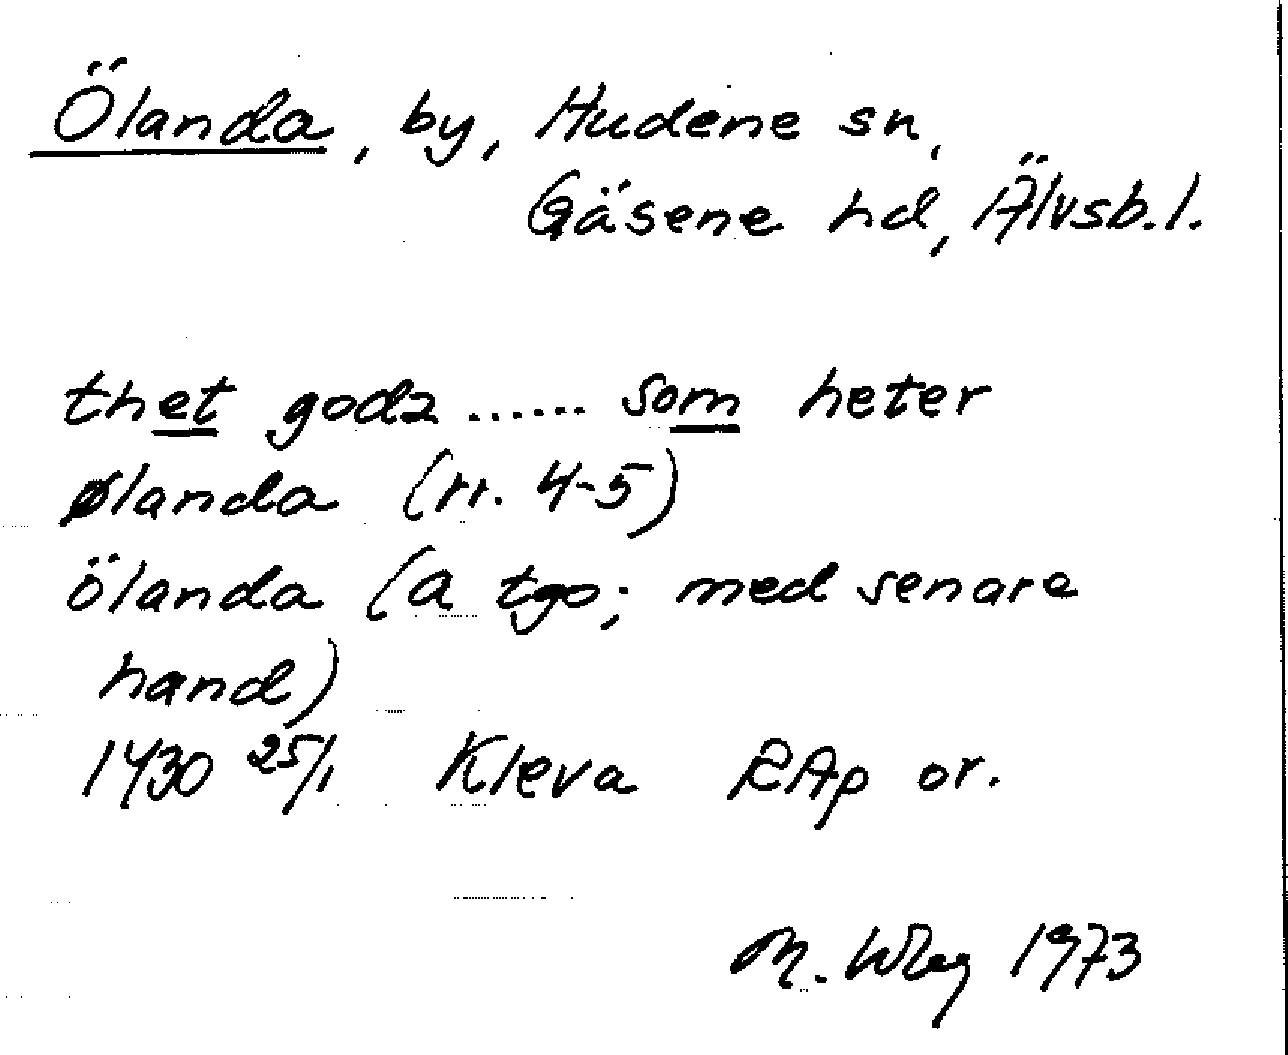 Ölanda, by, Hudene sn,
Gäsene hd, Älvsb.l.
thet godz ...... som heter
Ølanda (rr. 4-5)
ölanda (a tgo; med senare
hand)
1430 25/1 Kleva RAp or.
M. 1973